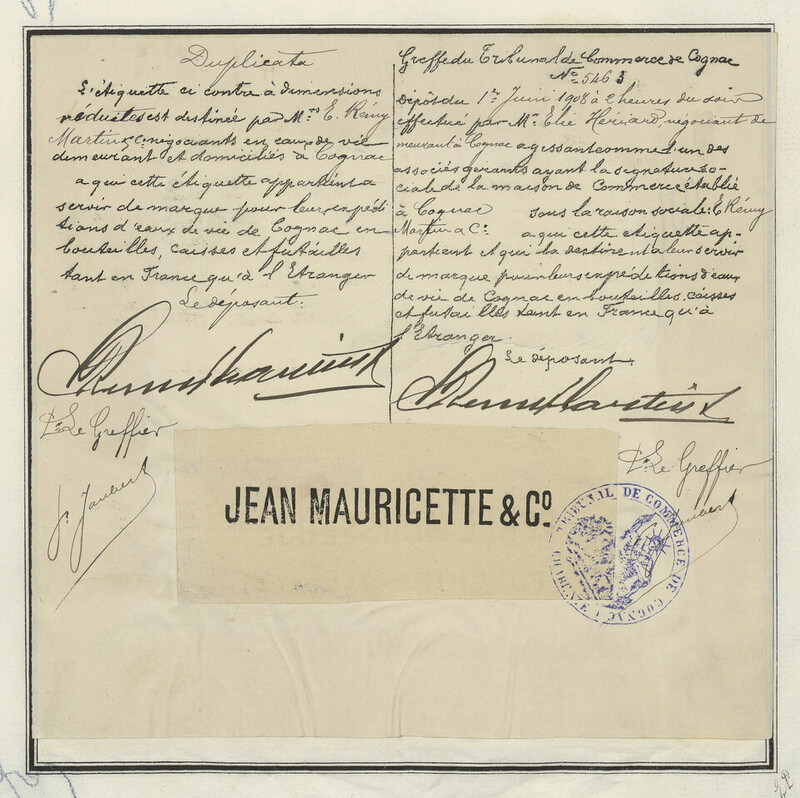 Duplicata
L'étiquette ci contre à dimensions
réduites est destinée par Mrs E. Rémy
Martin & Cie négociants en eaux de vie
demeurant et domiciliés à Cognac
a qui cette étiquette appartient a
servir de marque pour leurs expédi
tions d'eaux de vie de Cognac en
bouteilles, caisses et futailles
tant en France qu'à l'Etranger
Le déposant:
E. Remy Martin & Co
Pr Le Greffier
Greffe du Tribunal de Commerce de Cognac
No 5463
Dépôt du 1er Juin 1908 à 2 heures du soir
effectué par Mr Elie Hériard, négociant de
meurant à Cognac agissant comme l'un des
associés gérants ayant la signature so-
ciale de la maison de Commerce établie
à Cognac sous la raison sociale: E Rémy
Martin & Co a qui cette étiquette ap-
partient et qui la destinent a leur servir
de marque pour leurs expéditions d'eaux
de vie de Cognac en bouteilles, caisses
et futailles tant en France qu'à
l'Etranger.
Le déposant.
E. Remy Martin & Co
Pr Le Greffier
JEAN MAURICETTE & Co.
TRIBUNAL DE COMMERCE DE COGNAC
CHARENTE